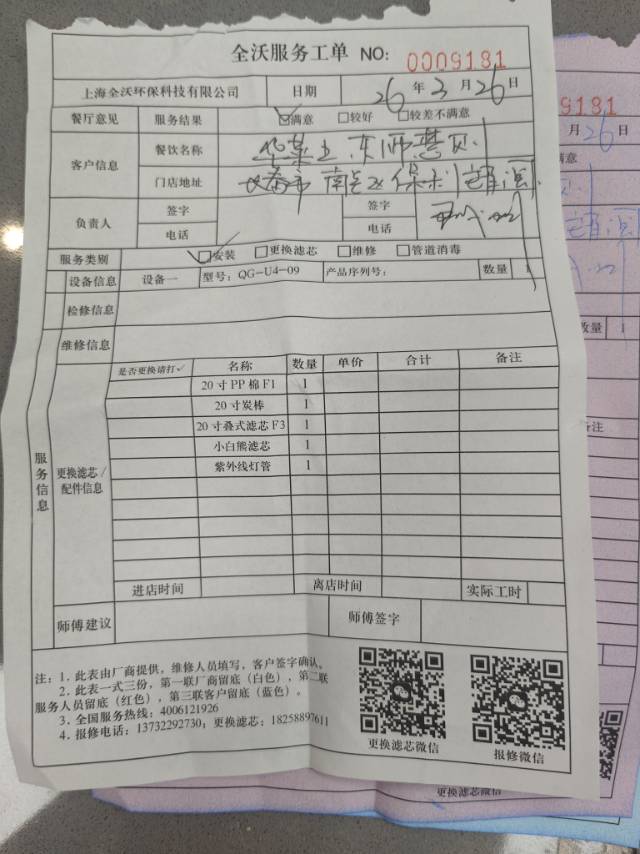 全沃服务工单 NO: 0009181
上海全沃环保科技有限公司 日期 26 年 3 月 26 日
餐厅意见 服务结果 ☑满意 □较好 □较差不满意
客户信息 餐饮名称
门店地址 长春市 南关区保利
负责人 签字 签字
电话 电话
服务类别 ☑安装 □更换滤芯 □维修 □管道消毒
设备信息 设备一 型号: QG-U4-09 产品序列号: 数量 1
检修信息
维修信息
服务信息
更换滤芯/配件信息
是否更换请打✓ 名称 数量 单价 合计 备注
20寸PP棉F1 1
20寸炭棒 1
20寸叠式滤芯F3 1
小白熊滤芯 1
紫外线灯管 1
进店时间 离店时间 实际工时
师傅建议 师傅签字
注: 1. 此表由厂商提供, 维修人员填写, 客户签字确认。
2. 此表一式三份, 第一联厂商留底(白色), 第二联
服务人员留底(红色), 第三联客户留底(蓝色)。
3. 全国服务热线: 4006121926
4. 报修电话: 13732292730; 更换滤芯: 18258897611
更换滤芯微信 报修微信
9181
月 26 日
满意
数量 1
备注
更换滤芯微信